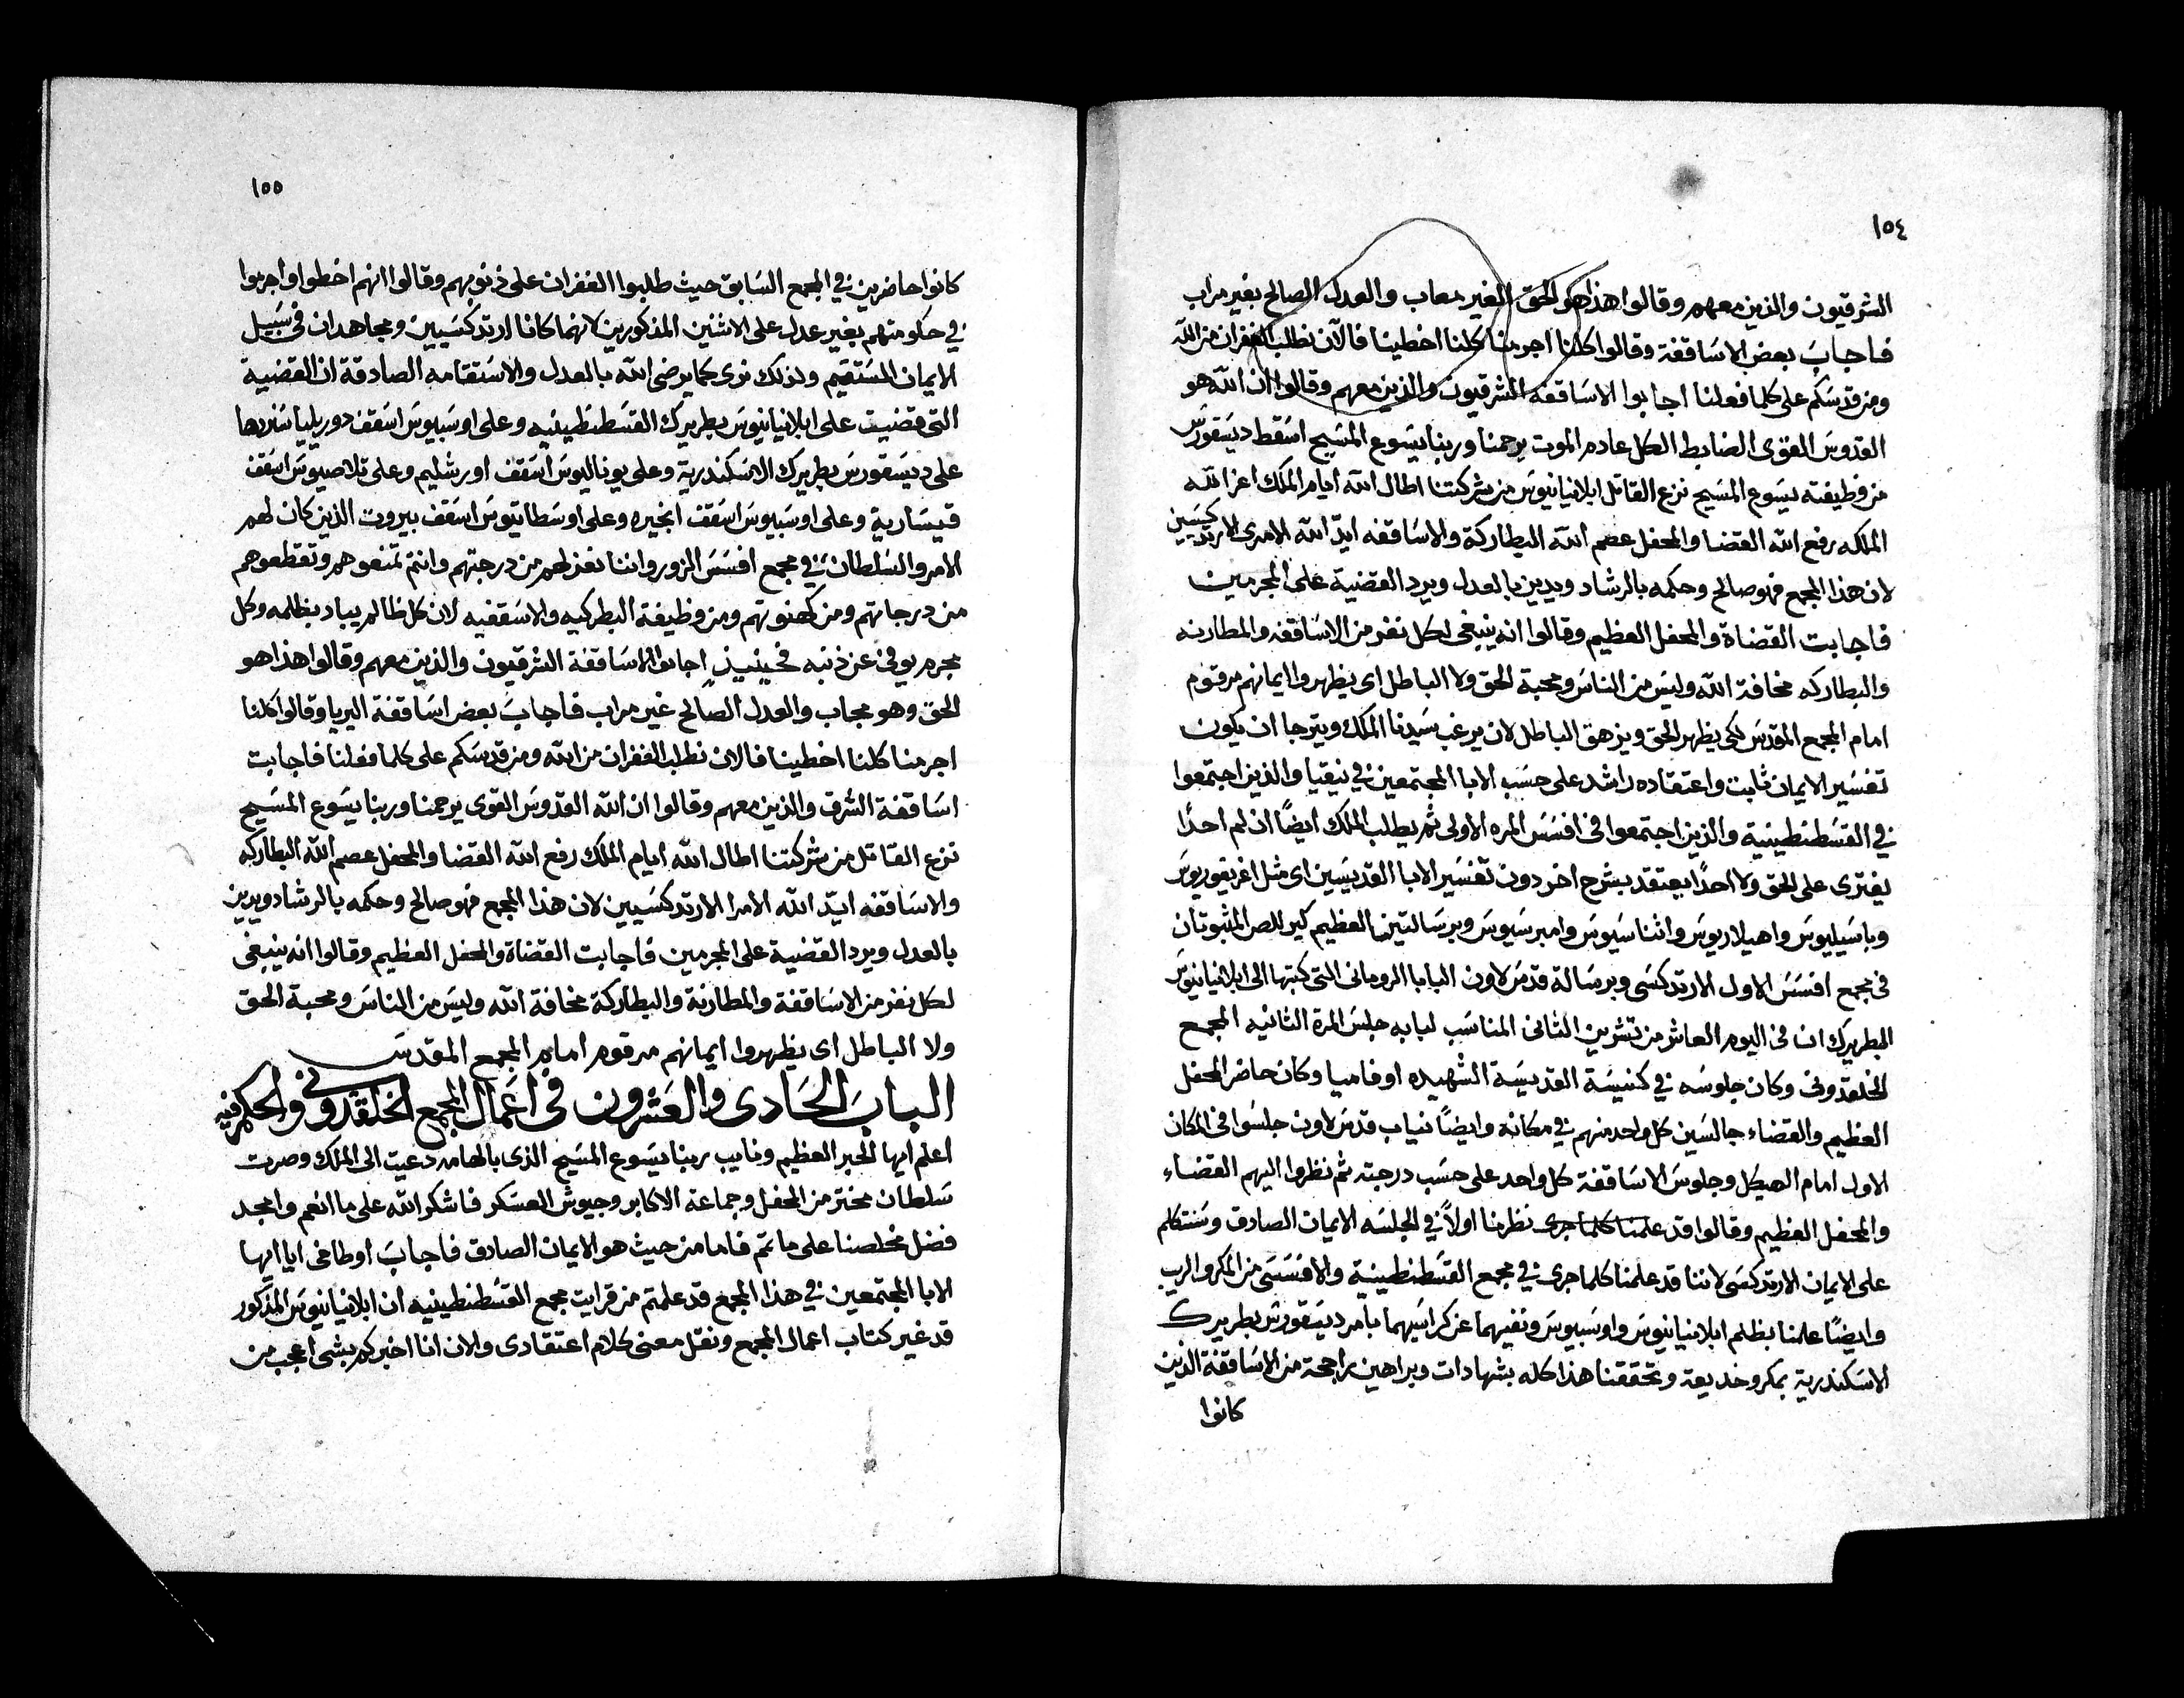 ١٥٤
الشرقيون والذين معهم وقالوا هذا هو الحق الغير معاب والعدل الصالح بغير مراب
فاجاب بعض الاساقفة وقالوا كلنا اجرمنا كلنا اخطينا فالآن نطلب الغفران من الله
ومن قدسكم على كلما فعلنا اجابوا الاساقفه الشرقيون والذين معهم وقالوا ان الله هو
القدوس القوى الضابط الكل عادم الموت يرحمنا وربنا يسوع المسيح اسقط ديسقورس
من وظيفته يسوع المسيح نزع القاتل ابلانيانيوس من شركتنا اطال الله ايام الملك اعز الله
الملكه رفع الله القضا والمحفل عصم الله البطاركة والاساقفه ايد الله الامرى الارتدكسيين
لان هذا المجمع فهو صالح وحكمه بالرشاد ويدين بالعدل ويرد القضية على المجرمين
فاجابت القضاة والمحفل العظيم وقالوا انه ينبغى لكل نفر من الاساقفه والمطارنه
والبطاركه مخافة الله وليس من الناس ومحبة الحق ولا الباطل اى يظهروا ايمانهم مرقوم
امام المجمع المقدس لكى يظهر الحق ويزهق الباطل لان يرغب سيدنا الملك ويترجا ان يكون
تفسير الايمان ثابت واعتقاده راشد على حسب الابا المجتمعين في نيقيا والذين اجتمعوا
في القسطنطينية والذين اجتمعوا فى افسس المره الاولى ثم يطلب الملك ايضًا ان لم احدًا
يفترى على الحق ولا احدًا يعتقد بشرح اخر دون تفسير الابا القديسين اى مثل اغريغوريوس
وباسيليوس واهيلاريوس واثناسيوس وامبرسيوس وبرسالتين العظيم كيرللص المثبوتان
فى مجمع افسس الاول الارتدكسى وبرسالة قدس لاون البابا الرومانى التى كتبها الى ابلانيانيوس
البطريرك ان فى اليوم العاشر من تشرين الثانى المناسب لبابه جلس المرة الثانيه المجمع
الخلقدونى وكان جلوسه في كنيسة القديسة الشهيده اوفاميا وكان حاضر المحفل
العظيم والقضاء جالسين كل واحد منهم في مكانه وايضًا نياب قدس لاون جلسوا فى المكان
الاول امام الهيكل وجلوس الاساقفة كل واحد على حسب درجته ثم نظروا اليهم القضاء
والمحفل العظيم وقالوا قد علمنا كلما جرى نظرنا اولاً في الجلسه الايمان الصادق وسنتكلم
على الايمان الارتدكسى لاننا قد علمنا كلما جرى في مجمع القسطنطينية والافسسى من المكر والريب
وايضًا علمنا بظلم ابلانيانيوس واوسبيوس ونفيهما عن كراسيهما بامر ديسقورس بطريرك
الاسكندرية بمكر وخديعة وتحققنا هذا كله بشهادات وبراهين راجحة من الاساقفة الذين
كانوا
١٥٥
كانوا حاضرين في المجمع السابق حيث طلبوا الغفران على ذنوبهم وقالوا انهم اخطوا واجرموا
في حكومتهم بغير عدل على الاثنين المذكورين لانهما كانا ارتدكسيين ومجاهدان فى سبيل
الايمان المستقيم ولذلك نرى كما يرضى الله بالعدل والاستقامه الصادقة ان القضية
التى قضيت على ابلانيانيوس بطريرك القسطنطينيه وعلى اوسبيوس اسقف دوريليا سنردها
على ديسقورس بطريرك الاسكندرية وعلى يوناليوس أسقف اورشليم وعلى تلاصيوس اسقف
قيسارية وعلى اوسبيوس اسقف انجيره وعلى اوسطاتيوس اسقف بيروت الذين كان لهم
الامر والسلطان في مجمع افسس الزور واننا نعزلهم من درجتهم وانتم تمنعوهم وتقطعوهم
من درجاتهم ومن كهنوتهم ومن وظيفة البطركيه والاسقفيه لان كل ظالم يباد بظلمه وكل
مجرم يوفى عن ذنبه فحينيذٍ اجابوا الاساقفة الشرقيون والذين معهم وقالوا هذا هو
الحق وهو مجاب والعدل الصالح غير مراب فاجاب بعض اساقفة اليريا وقالوا كلنا
اجرمنا كلنا اخطينا فالان نطلب الغفران من الله ومن قدسكم على كلما فعلنا فاجابت
اساقفة الشرق والذين معهم وقالوا ان الله القدوس القوى يرحمنا وربنا يسوع المسيح
نزع القاتل من شركتنا اطال الله ايام الملك رفع الله القضا والمحفل عصم الله البطاركه
والاساقفه ايد الله الأمرا الارتدكسيين لان هذا المجمع فهو صالح وحكمه بالرشاد ويدين
بالعدل ويرد القضية على المجرمين فاجابت القضاة والمحفل العظيم وقالوا انه ينبغى
لكل نفر من الاساقفة والمطارنة والبطاركة مخافة الله وليس من الناس ومحبة الحق
ولا الباطل اى يظهروا ايمانهم مرقوم امام المجمع المقدس
الباب الحادى والعشرون فى اعمال المجمع الخلقدونى والحكم فيه
اعلم ايها الحبر العظيم ونايب ربنا يسوع المسيح الذى بالهامه دعيت الى الملك وصرت
سلطان مختر من المحفل وجماعة الاكابر وجيوش العسكر فاشكر الله على ما انعم وامجد
فضل مخلصنا على ما تم فاما من حيث هو الايمان الصادق فاجاب اوطاخى ايا ايها
الابا المجتمعين في هذا المجمع قد علمتم من قرايت مجمع القسطنطينيه ان ابلانيانيوس المذكور
قد غير كتاب اعمال المجمع ونقل معنى كلام اعتقادى والان انا اخبركم بشى اعجب من